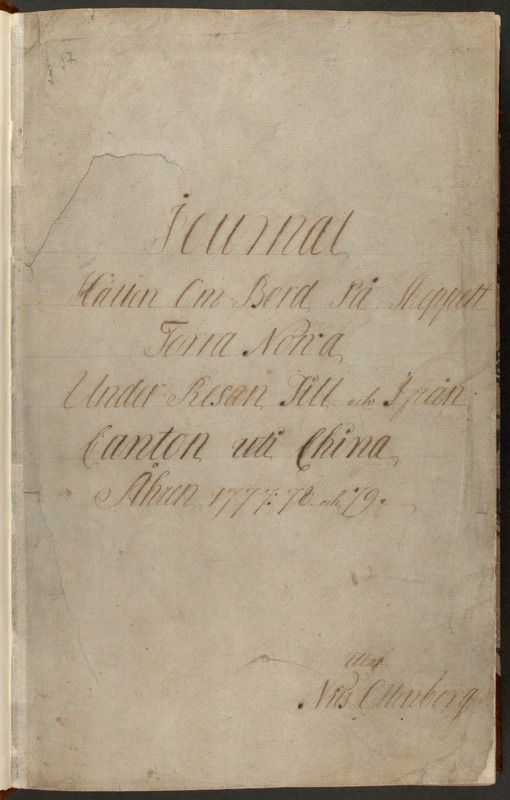 Journal
Hållen Om Bord På Skeppett
Terra Nova
Under Resan Till och Ifrån
Canton uti China
Åhren 1777: 78 och 79.
Utaf
Nils Ottenberg